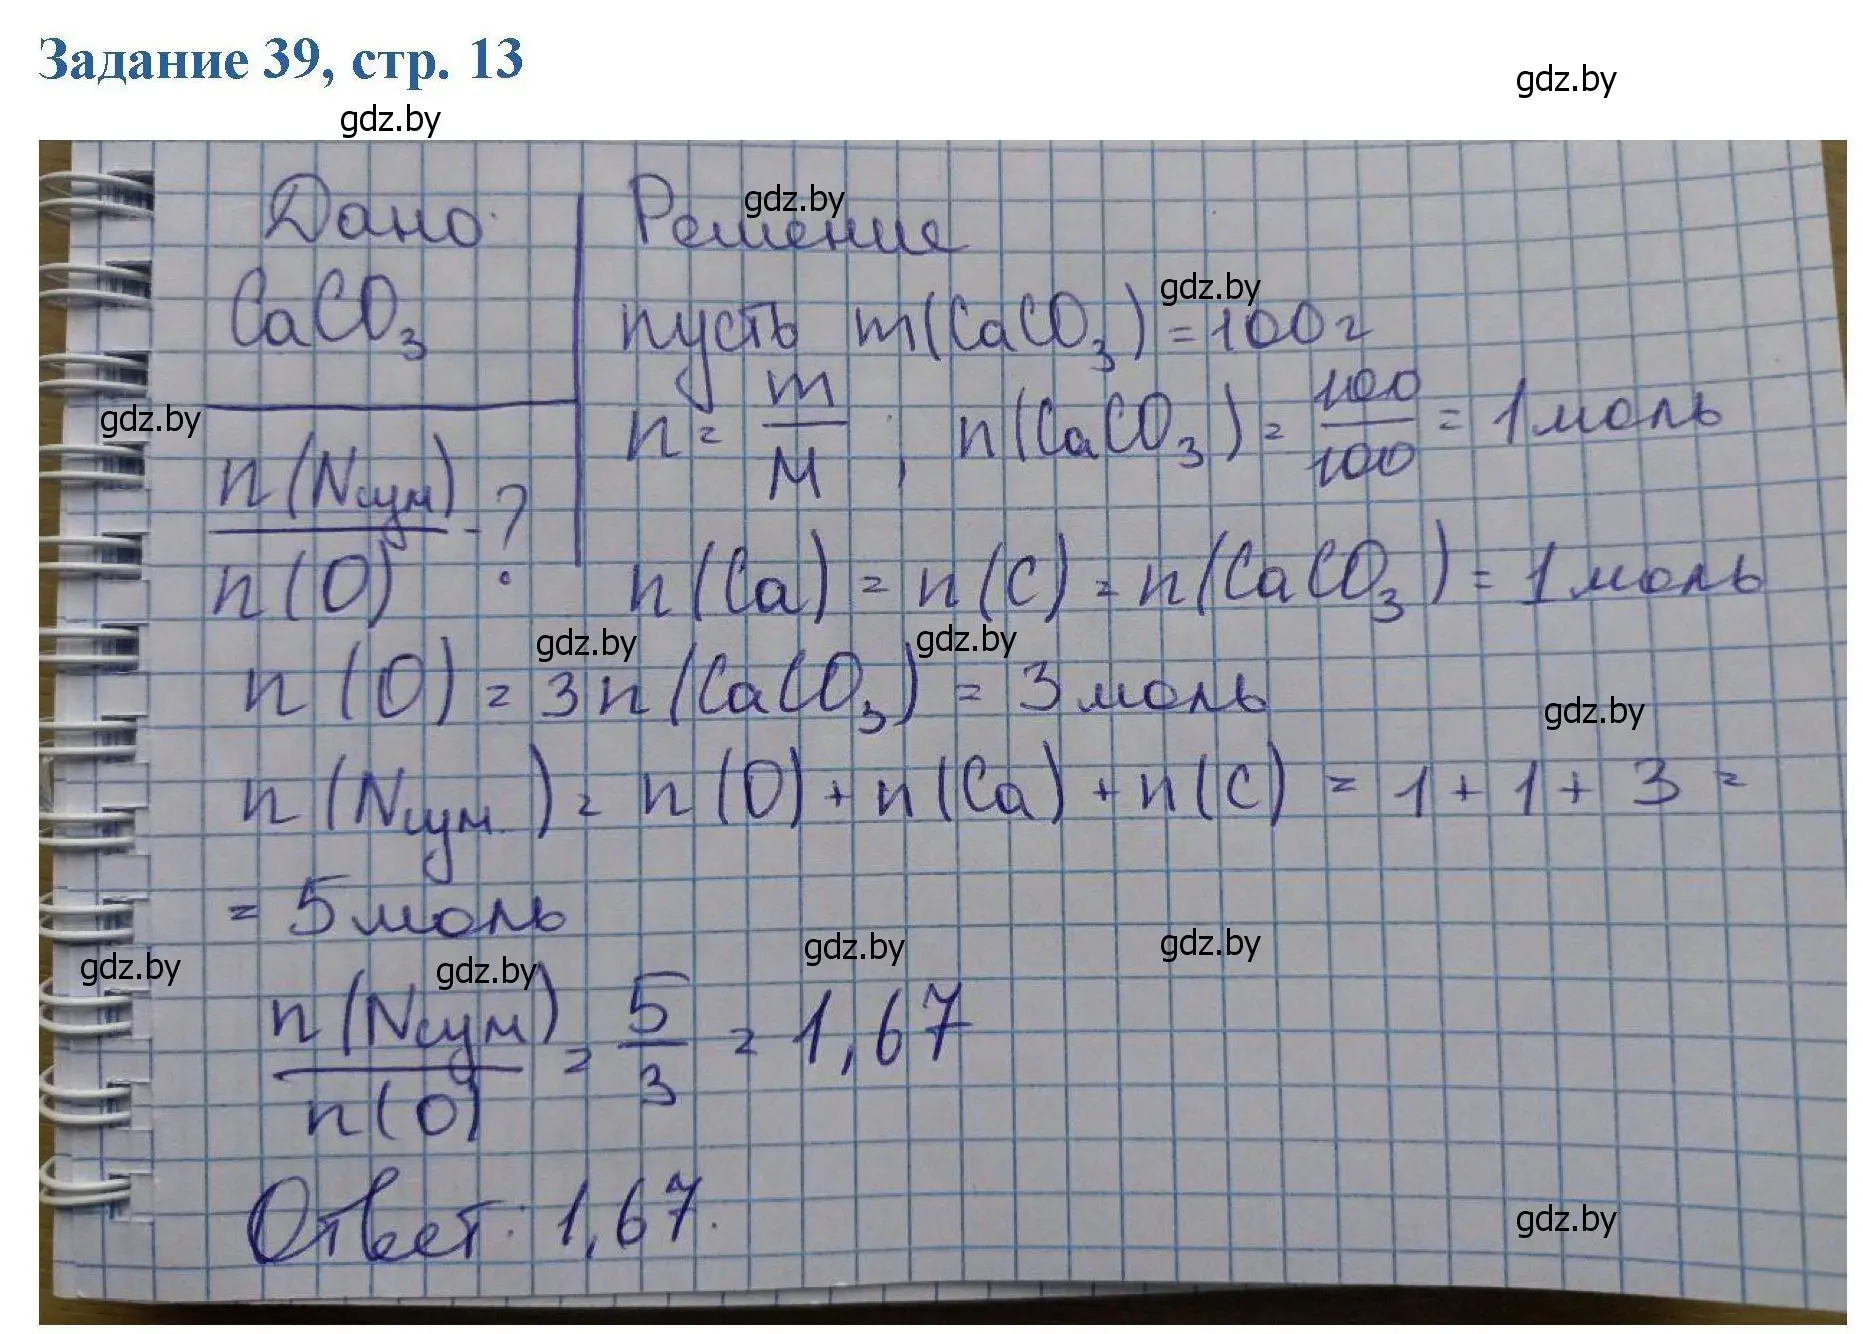 Задание 39, стр. 13
gdz.by
gdz.by
Дано: Решение
gdz.by
CaCO₃ пусть m(CaCO₃) = 100 г
gdz.by
n = m/M ; n(CaCO₃) = 100/100 = 1 моль
gdz.by
n(Nсум)/n(O) - ?
n(Ca) = n(C) = n(CaCO₃) = 1 моль
gdz.by gdz.by
n(O) = 3n(CaCO₃) = 3 моль
gdz.by
n(Nсум.) = n(O) + n(Ca) + n(C) = 1 + 1 + 3 =
= 5 моль
gdz.by gdz.by gdz.by gdz.by
n(Nсум)/n(O) = 5/3 = 1,67
Ответ: 1,67.
gdz.by